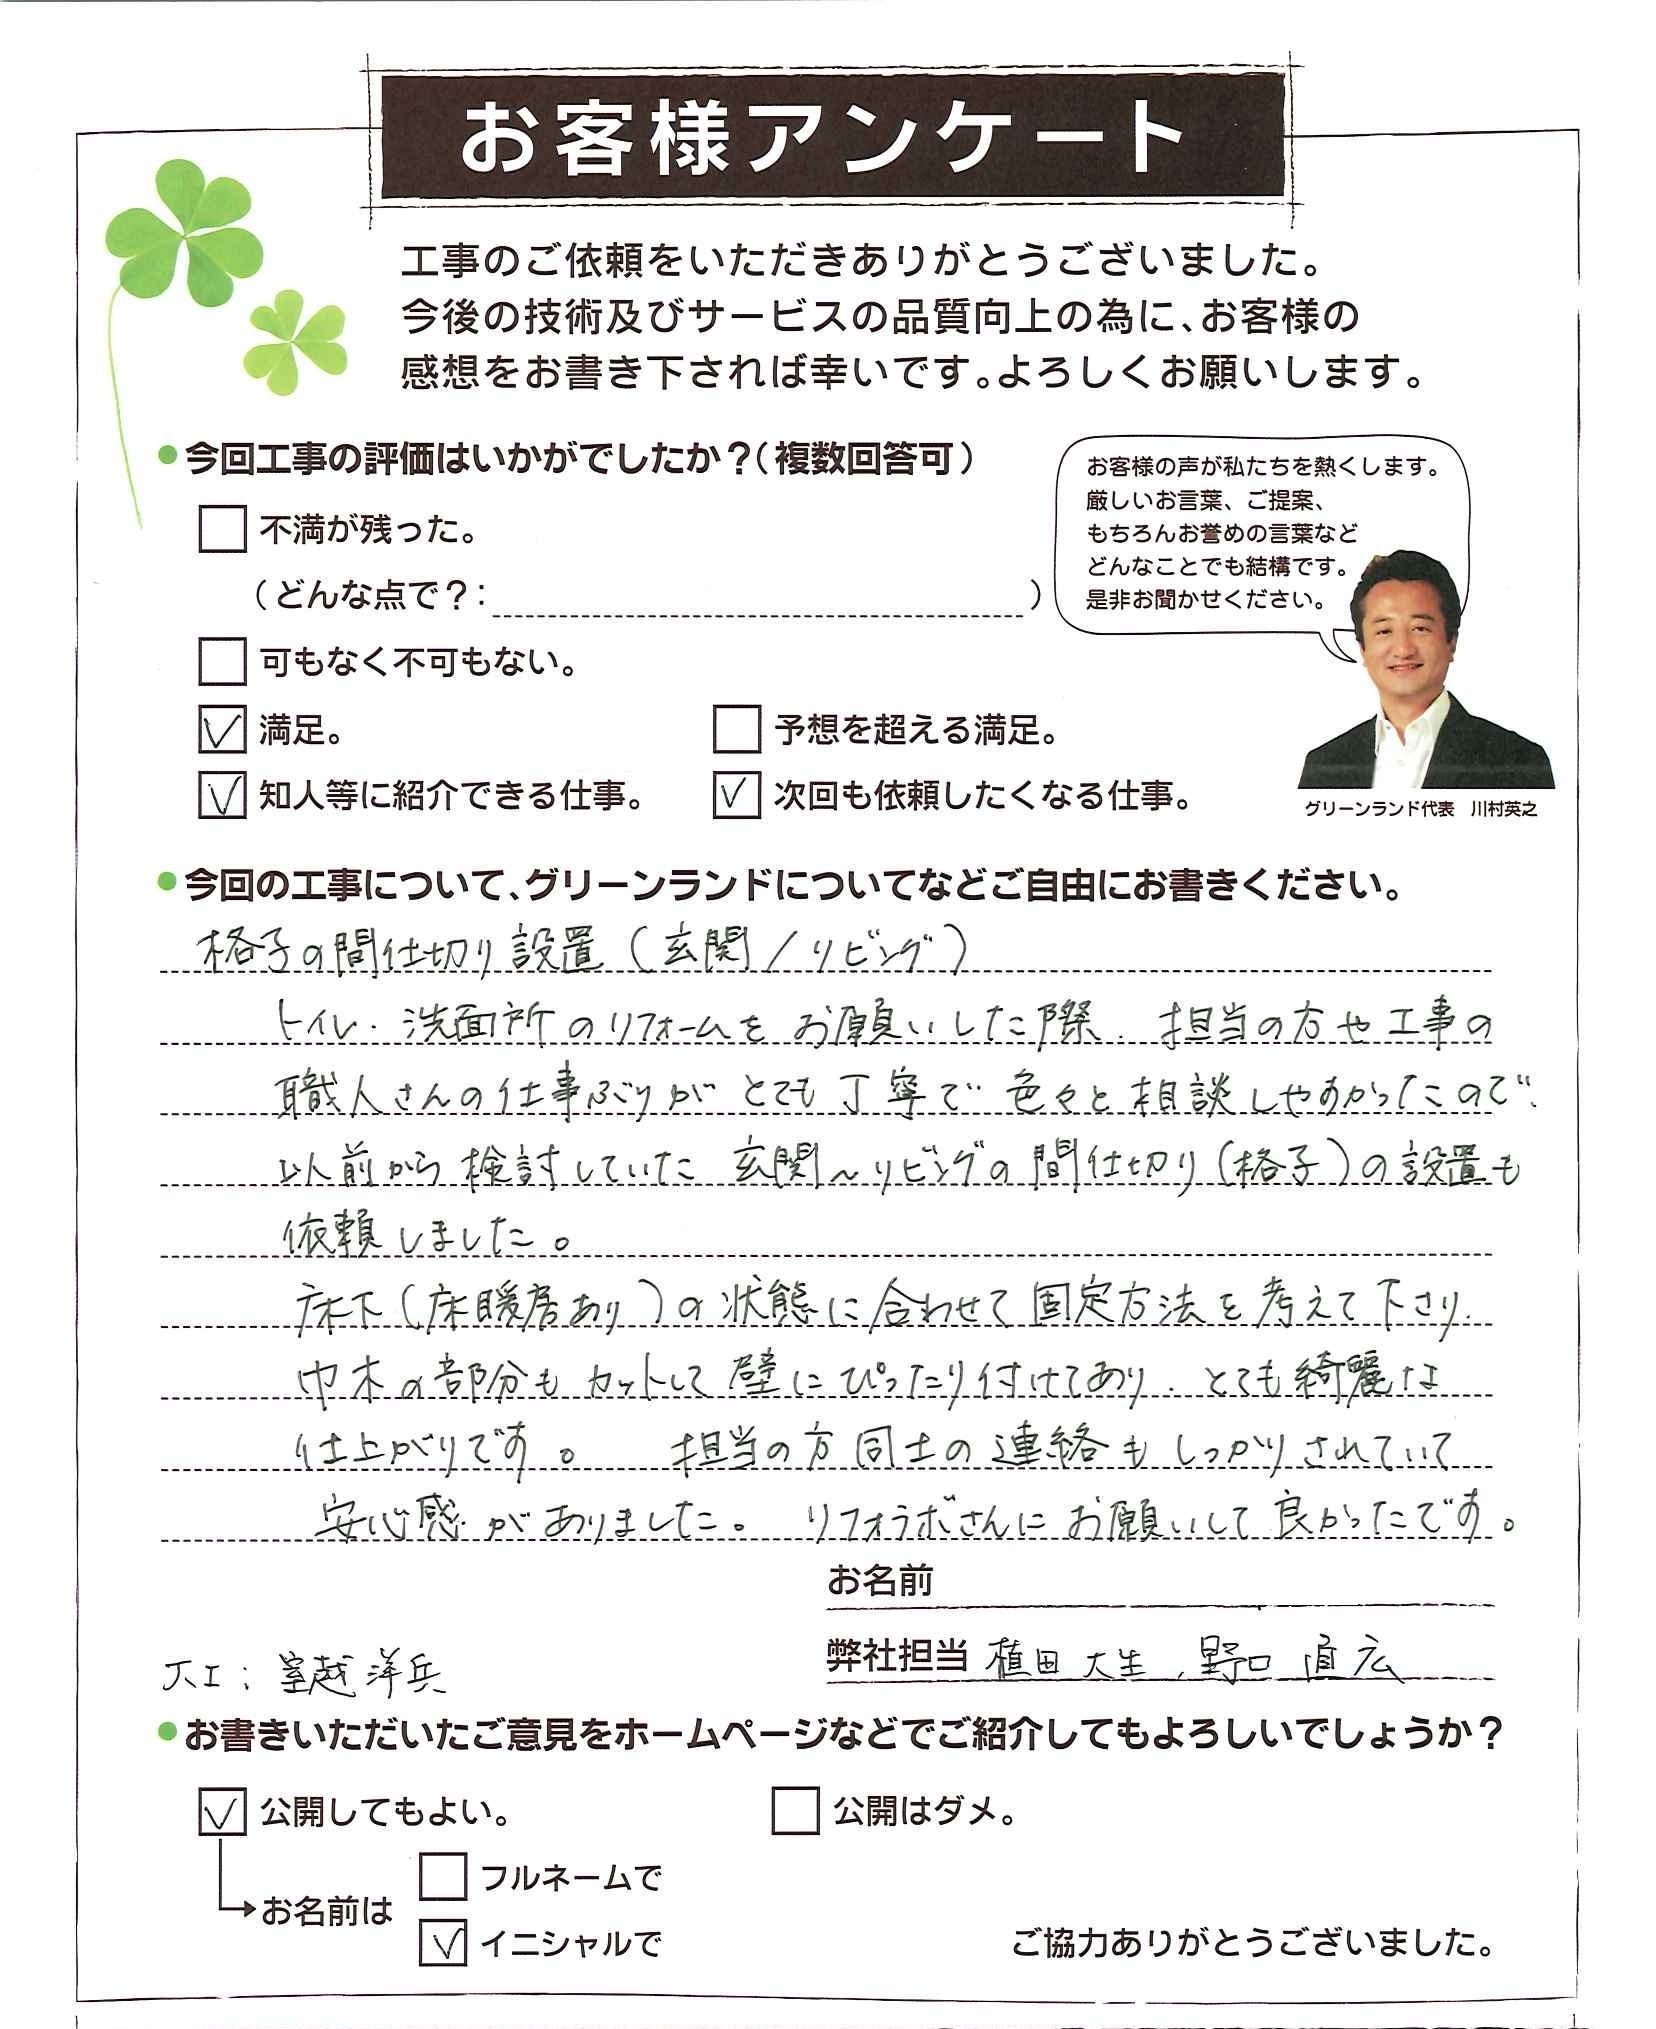 お客様アンケート
工事のご依頼をいただきありがとうございました。
今後の技術及びサービスの品質向上の為に、お客様の
感想をお書き下されば幸いです。よろしくお願いします。
●今回工事の評価はいかがでしたか？（複数回答可）
お客様の声が私たちを熱くします。
厳しいお言葉、ご提案、
もちろんお誉めの言葉など
どんなことでも結構です。
是非お聞かせください。
グリーンランド代表　川村英之
□ 不満が残った。
（どんな点で？：　　　）
□ 可もなく不可もない。
☑ 満足。　□ 予想を超える満足。
☑ 知人等に紹介できる仕事。　☑ 次回も依頼したくなる仕事。
●今回の工事について、グリーンランドについてなどご自由にお書きください。
格子の間仕切り設置（玄関/リビング）
トイレ・洗面所のリフォームをお願いした際、担当の方や工事の
職人さんの仕事ぶりがとても丁寧で色々と相談しやすかったので、
以前から検討していた玄関～リビングの間仕切り（格子）の設置も
依頼しました。
床下（床暖房あり）の状態に合わせて固定方法を考えて下さり、
巾木の部分もカットして壁にぴったり付けてあり、とても綺麗な
仕上がりです。　担当の方同士の連絡もしっかりされていて
安心感がありました。　リフォラボさんにお願いして良かったです。
お名前
弊社担当　植田 大生、野口 直広
大工：室越 洋兵
●お書きいただいたご意見をホームページなどでご紹介してもよろしいでしょうか？
☑ 公開してもよい。　□ 公開はダメ。
→お名前は
□ フルネームで
☑ イニシャルで
ご協力ありがとうございました。